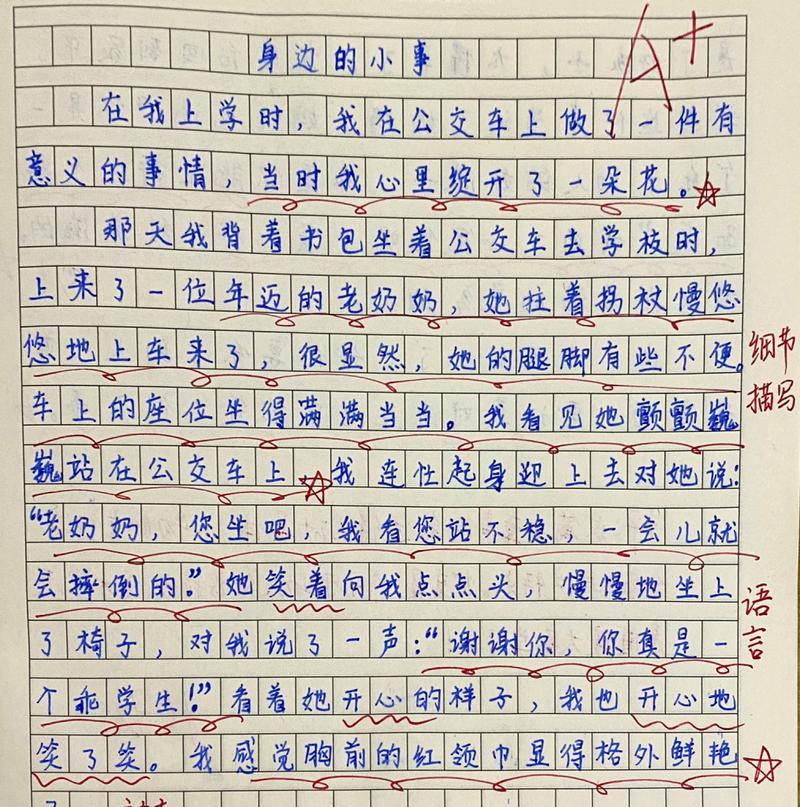 A+
身边的小事
在我上学时，我在公交车上做了一件有
意义的事情，当时我心里绽开了一朵花。
那天我背着书包坐着公交车去学校时，
上来了一位年迈的老奶奶，她拄着拐杖慢悠
悠地上车来了，很显然，她的腿脚有些不便。
细节
描写
车上的座位坐得满满当当。我看见她颤颤巍
巍站在公交车上，我连忙起身迎上去对她说：
“老奶奶，您坐吧，我看您站不稳，一会儿就
会摔倒的。”她笑着向我点点头，慢慢地坐上
了椅子，对我说了一声：“谢谢你，你真是一
个乖学生！”看着她开心的样子，我也开心地
语言
笑了笑。我感觉胸前的红领巾显得格外鲜艳